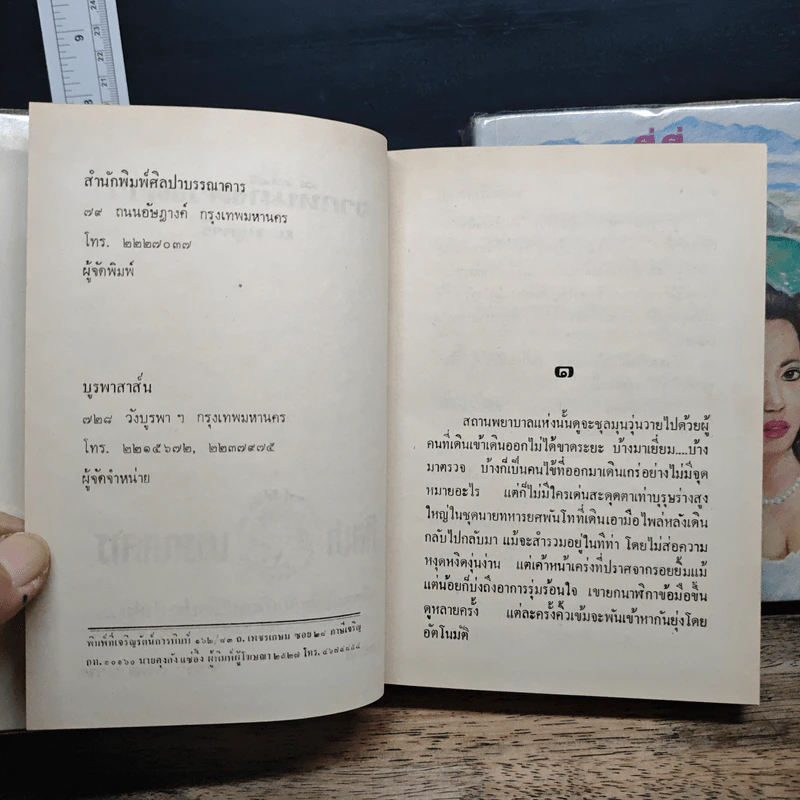 สำนักพิมพ์ศิลปาบรรณาคาร
๗๙ ถนนอัษฎางค์ กรุงเทพมหานคร
โทร. ๒๒๒๗๐๓๗
ผู้จัดพิมพ์
บูรพาสาส์น
๗๒๘ วังบูรพา ฯ กรุงเทพมหานคร
โทร. ๒๒๑๕๖๗๒, ๒๒๓๗๙๗๕
ผู้จัดจำหน่าย
พิมพ์ที่เจริญรัตน์การพิมพ์ ๑๖๒/๘๓ ถ. เพชรเกษม ซอย ๒๘ ภาษีเจริญ
กท. ๑๐๑๖๐ นายคุงกัง แซ่อึ้ง ผู้พิมพ์ผู้โฆษณา ๒๕๒๗ โทร. ๔๖๗๘๘๕๔
๑
สถานพยาบาลแห่งนั้นดูจะชุลมุนวุ่นวายไปด้วยผู้
คนที่เดินเข้าเดินออกไม่ได้ขาดระยะ บ้างมาเยี่ยม....บ้าง
มาตรวจ บ้างก็เป็นคนไข้ที่ออกมาเดินเกร่อย่างไม่มีจุด
หมายอะไร แต่ก็ไม่มีใครเด่นสะดุดตาเท่าบุรุษร่างสูง
ใหญ่ในชุดนายทหารยศพันโทที่เดินเอามือไพล่หลังเดิน
กลับไปกลับมา แม้จะสำรวมอยู่ในทีท่า โดยไม่ส่อความ
หงุดหงิดงุ่นง่าน แต่เค้าหน้าเคร่งที่ปราศจากรอยยิ้มแม้
แต่น้อยก็บ่งถึงอาการรุ่มร้อนใจ เขายกนาฬิกาข้อมือขึ้น
ดูหลายครั้ง แต่ละครั้งคิ้วเข้มจะพันเข้าหากันยุ่งโดย
อัตโนมัติ
24
23
22
21
9
8